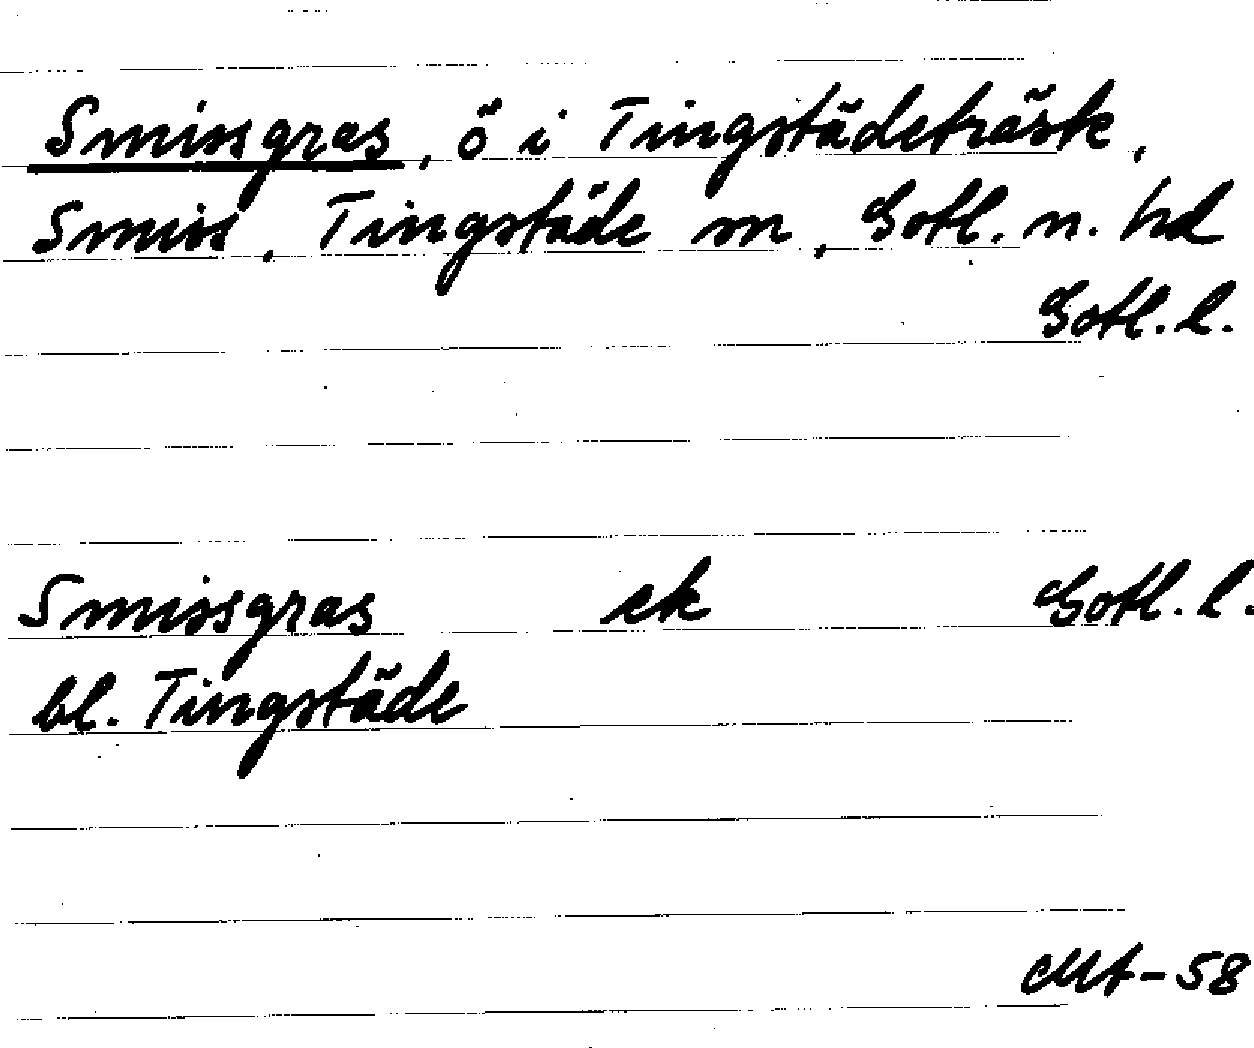 Smissgras, ö i Tingstädeträsk,
Smiss, Tingstäde sn, Gotl. n. hd
Gotl. l.
Smissgras ek Gotl. l.
bl. Tingstäde
-58